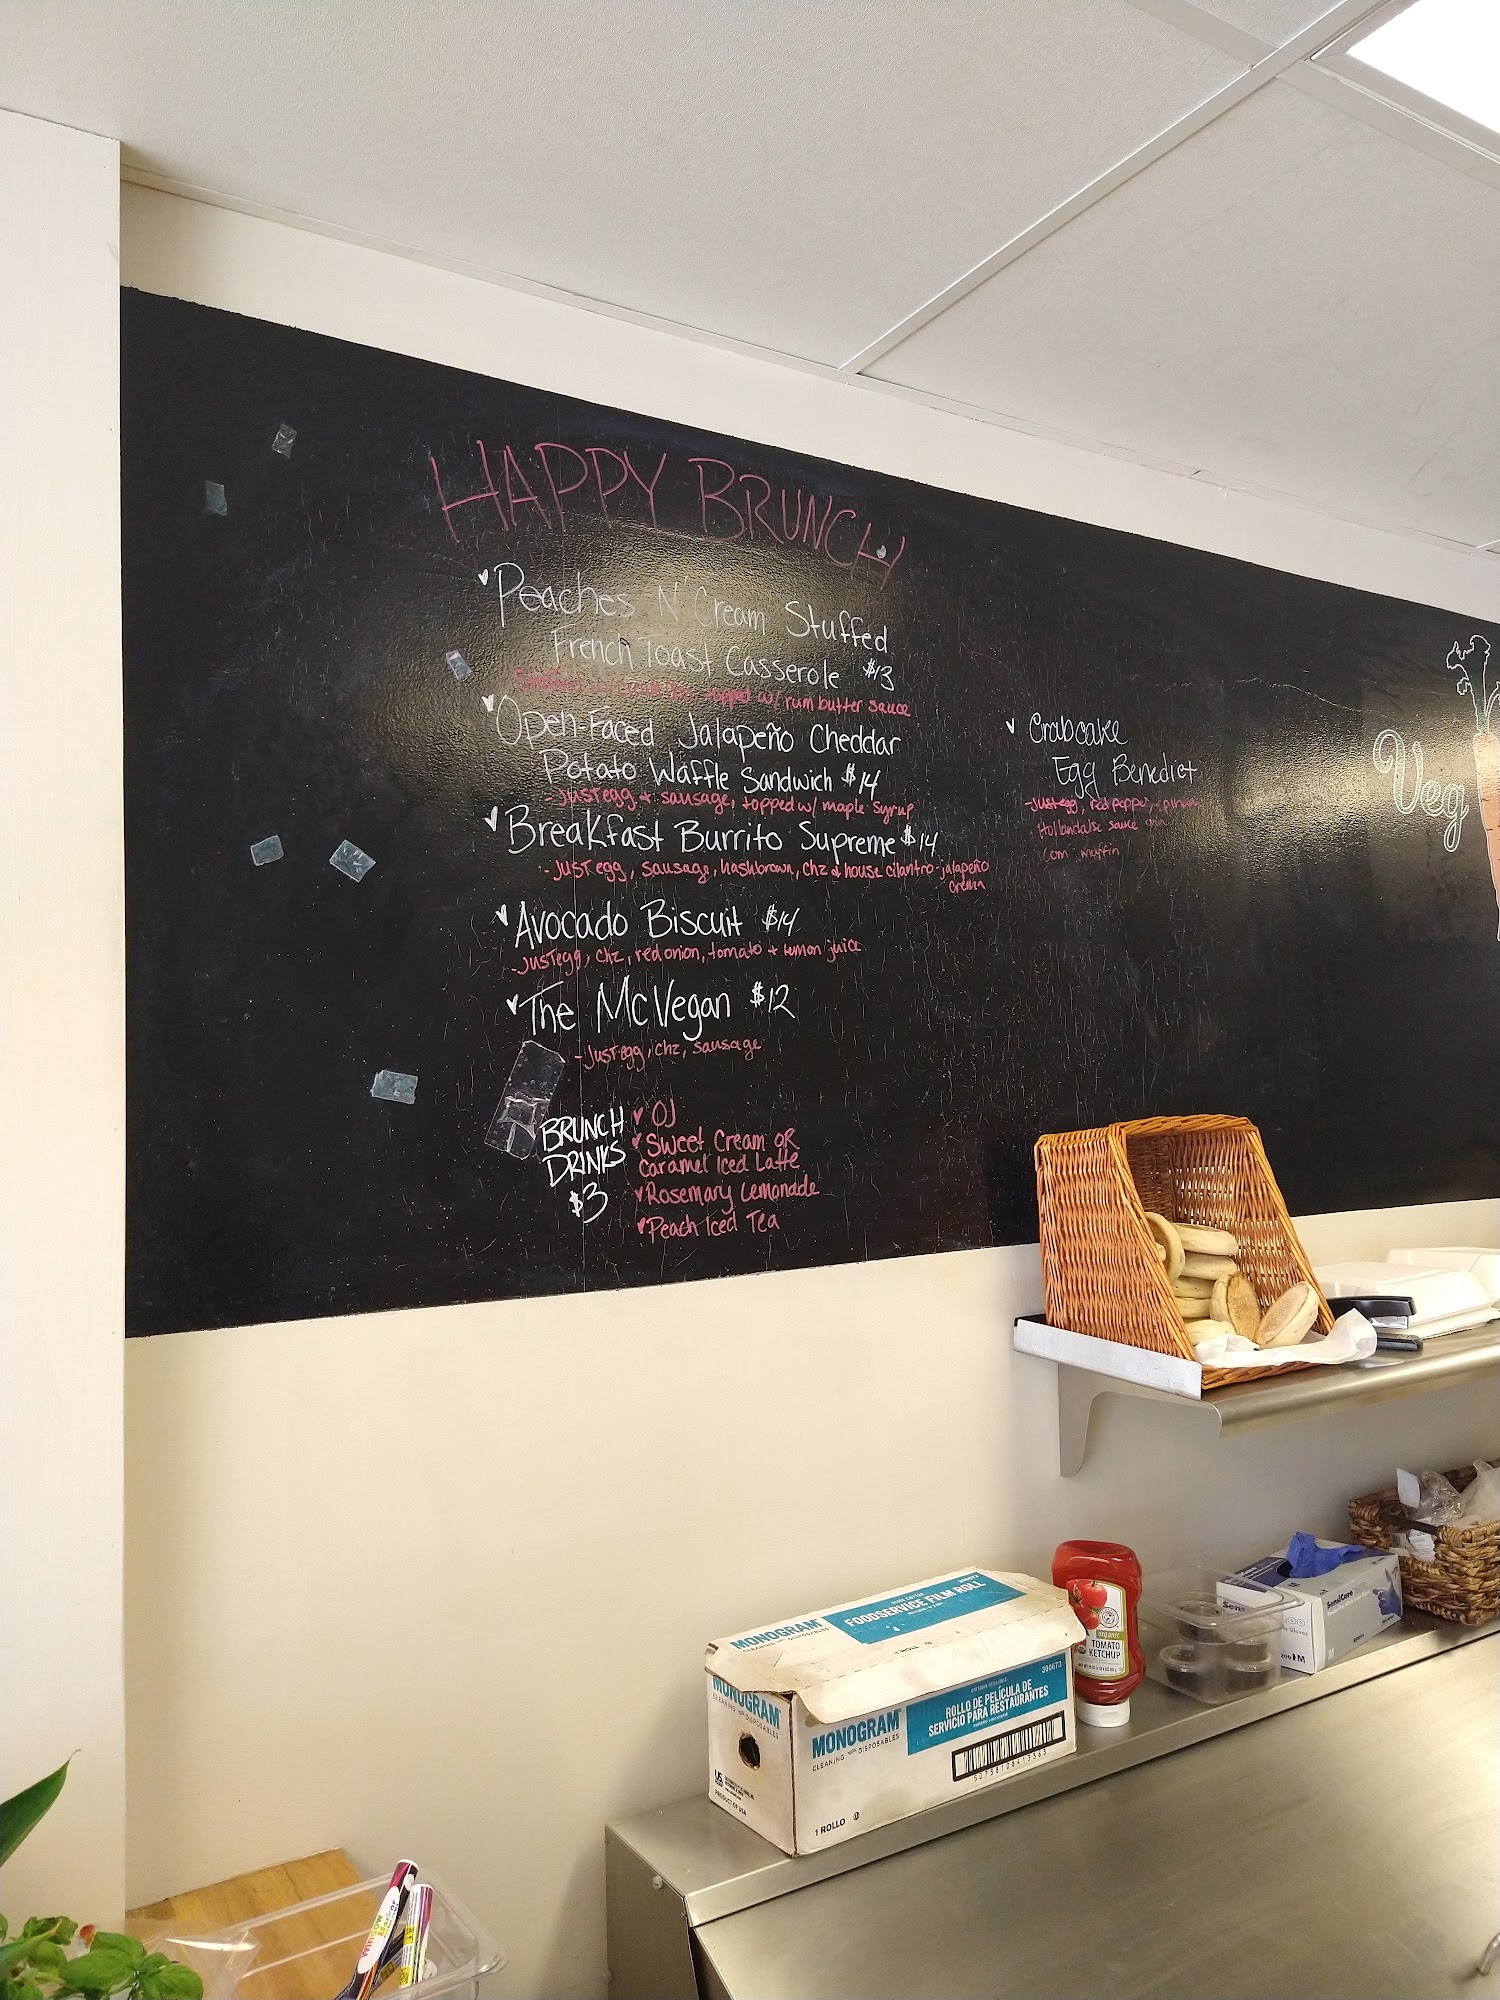 HAPPY BRUNCH
Peaches N' Cream Stuffed
French Toast Casserole $13
topped w/ rum butter sauce
Open-Faced Jalapeño Cheddar
Potato Waffle Sandwich $14
- JUST egg + sausage, topped w/ maple syrup
Breakfast Burrito Supreme $14
- JUST egg, sausage, hashbrown, chz & house cilantro-jalapeño
crema
Avocado Biscuit $14
- JUST egg, chz, red onion, tomato + lemon juice
The McVegan $12
- JUST egg, chz, sausage
BRUNCH
DRINKS
$3
OJ
Sweet Cream OR
Caramel Iced Latte
Rosemary Lemonade
Peach Iced Tea
Crabcake
Egg Benedict
- JUST egg, red pepper,
Hollandaise sauce
corn muffin
Veg
MONOGRAM
CLEANING DISPOSABLES
FOODSERVICE FILM ROLL
300673
1 ROLL
MONOGRAM
CLEANING DISPOSABLES
US
PRODUCT OF USA
MONOGRAM
CLEANING DISPOSABLES
300673
ROLLO DE PELÍCULA DE
SERVICIO PARA RESTAURANTES
1 ROLLO
organic
TOMATO
KETCHUP
SensiCare
200 M